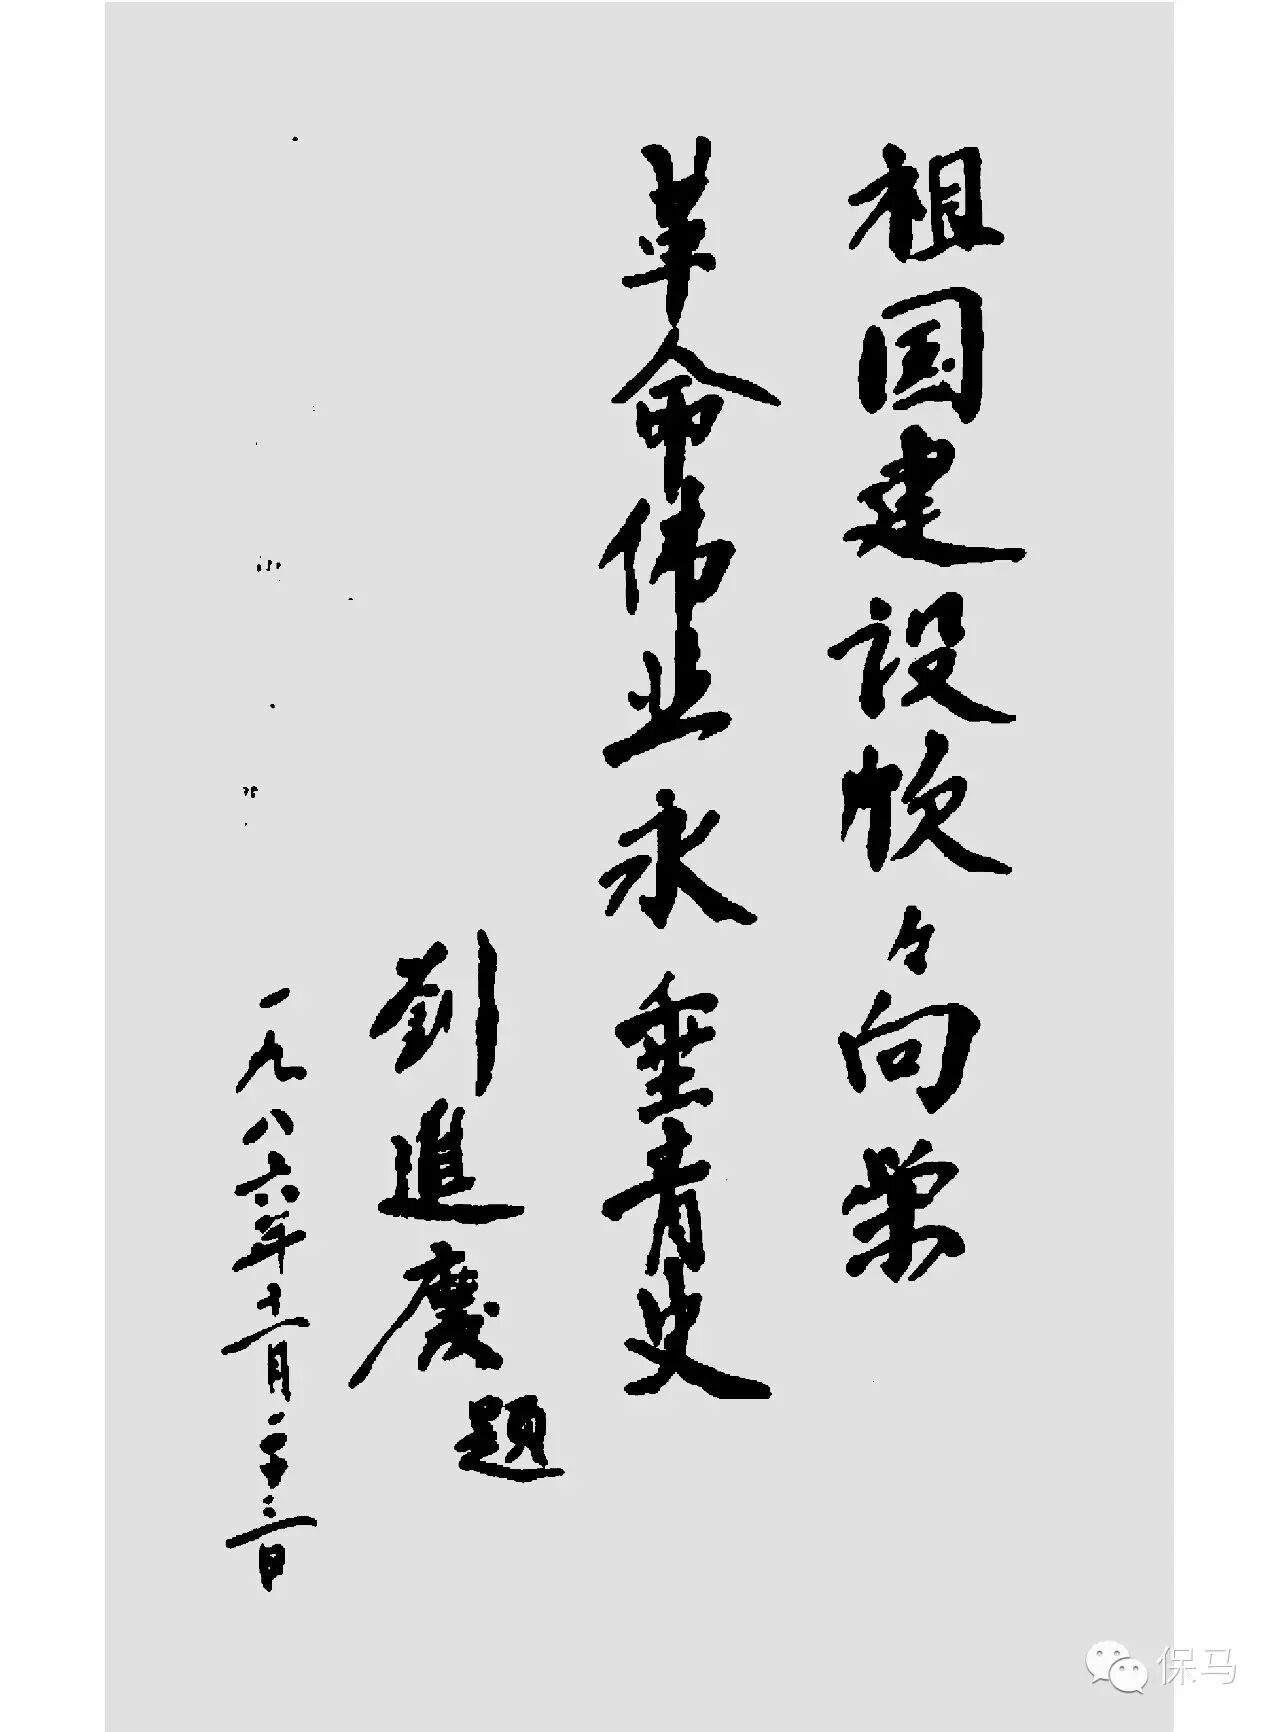 祖国建设欣々向荣
革命伟业永垂青史
劉進慶题
一九八六年十二月二十三日
保马